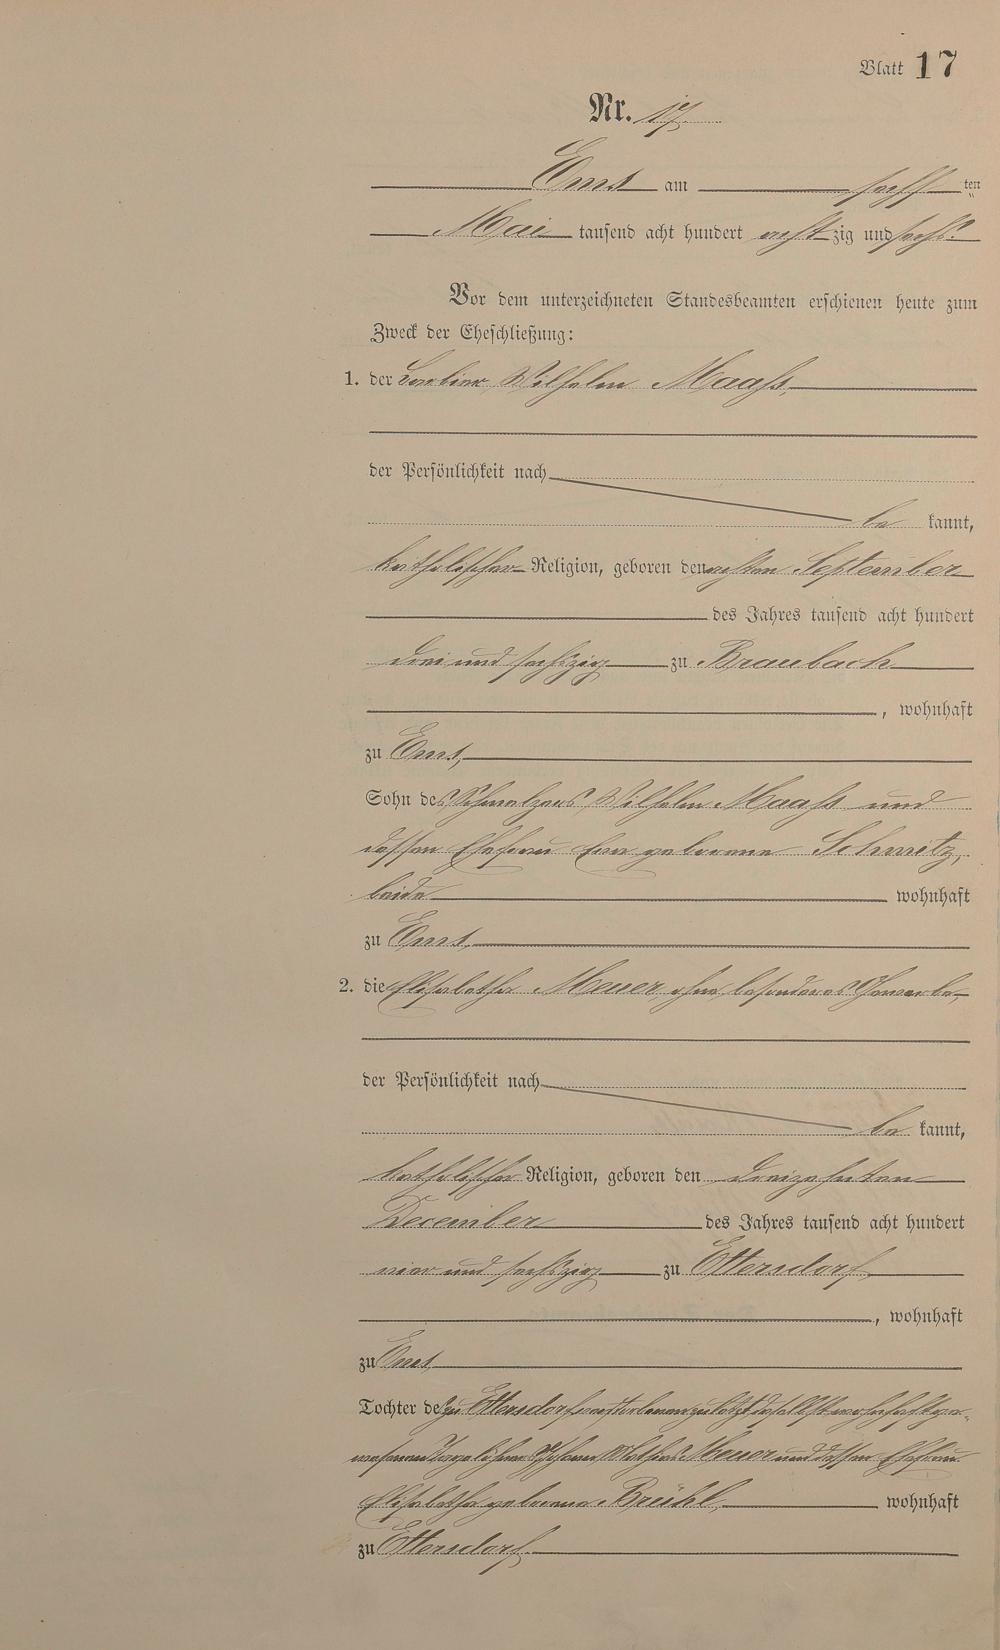 Blatt 17
Nr. 17.
Ems am sechsten
Mai tausend acht hundert achtzig und sechs.
Vor dem unterzeichneten Standesbeamten erschienen heute zum
Zweck der Eheschließung:
1. der Barbier Wilhelm Maaß,
der Persönlichkeit nach
bekannt,
katholischer Religion, geboren den achten September
des Jahres tausend acht hundert
drei und sechszig zu Braubach
, wohnhaft
zu Ems,
Sohn des Schmelzers Wilhelm Maaß und
dessen Ehefrau Eva geborene Schmitz,
beide wohnhaft
zu Ems,
2. die Elisabetha Meuer, ohne besonderes Gewerbe
der Persönlichkeit nach
bekannt,
katholischer Religion, geboren den dreizehnten
December des Jahres tausend acht hundert
vier und sechszig zu Ettersdorf
, wohnhaft
zu Ems,
Tochter des zu Ettersdorf verstorbenen zuletzt daselbst wohnhaft ge-
wesenen Tagelöhners Johann Mathias Meuer und dessen Ehefrau
Elisabetha geborene Brühl, wohnhaft
zu Ettersdorf.